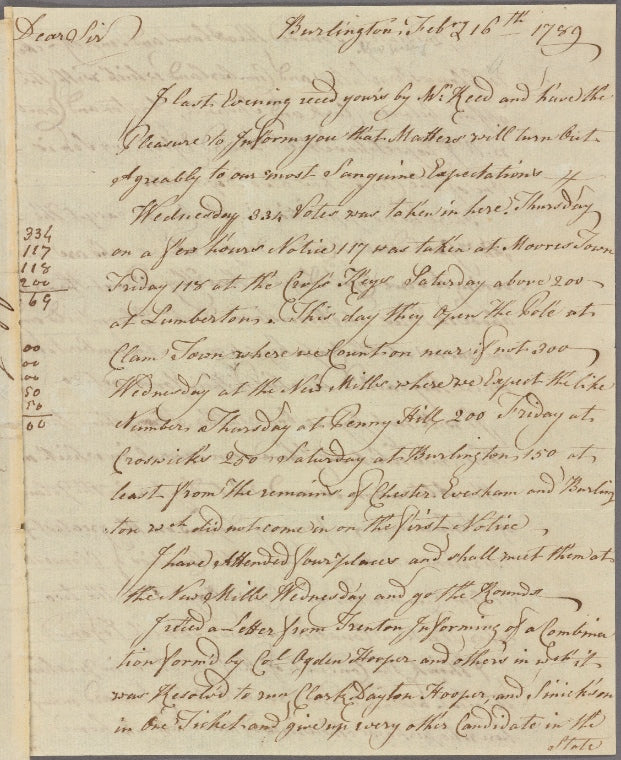 Dear Sir
Burlington Feby 16th 1789
I last Evening recd yours by Mr Reed and have the
Pleasure to Inform you that Matters will turn out
Agreably to our most Sanguine Expectations
Wednesday 334 Votes was taken in here, Thursday
on a few hours Notice 117 was taken at Moores Town
Friday 118 at the Cross Keys Saturday above 200
at Lumberton. This day they Open the Pole at
Clam Town where we Count on near if not 300
Wednesday at the New Mills where we Expect the like
Number, Thursday at Penny Hill 200 Friday at
Croswicks 250 Saturday at Burlington 150 at
least from the remains of Chester Evesham and Burling
ton wch did not come in on the first Notice
I have Attended four places and shall meet them at
the New Mills Wednesday and go the Rounds
I recd a Letter from Trenton Informing of a Combina
tion formd by Col Ogden Hooper and others in wch it
was Resolvd to run Clark Dayton Hooper and Sinickson
in One Ticket and give up every other Candidate in the
State
334
117
118
200
69
00
00
00
50
50
00